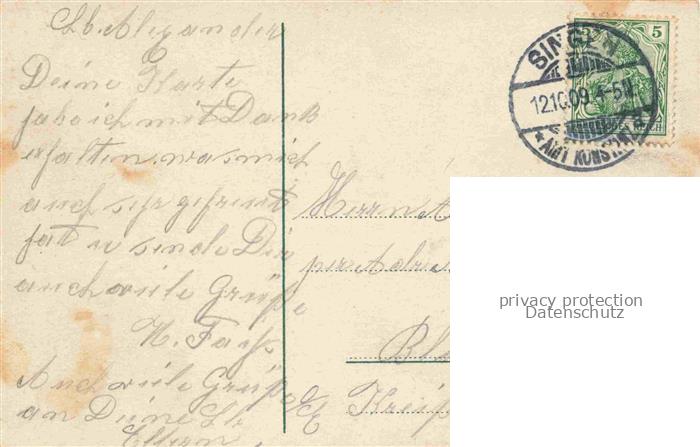 Lb. Alexander
Deine Karte
habe ich mit Dank
erhalten, was mich
auch sehr gefreut
hat u sende Dir
auch viele Grüße
Auch viele Grüße
an Deine Lb
Eltern.
Herrn
per
SINGEN
12.10.09. 4-5N
* AMT KONSTANZ
5
privacy protection
Datenschutz